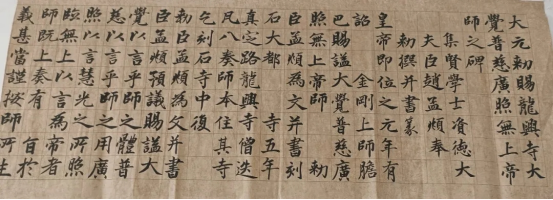 大元勅賜龍興寺大
覺普慈廣照無上帝
師之碑
集賢學士資德大
夫臣趙孟頫奉
勅撰并書篆
皇帝即位之元年有
詔金剛上師膽
巴賜謚大覺普慈廣
照無上帝師勅
臣孟頫為文并書刻
石大都寺五年
真定路龍興寺僧迭
凡八奏師本住其寺
乞刻石寺中復
勅臣孟頫為文并書
臣孟頫預議賜謚大
覺以言乎師之體普
慈以言乎師之用廣
照以言慧光之所照
臨無上以言為帝者
師既奏有旨於
義甚當謹按師所生